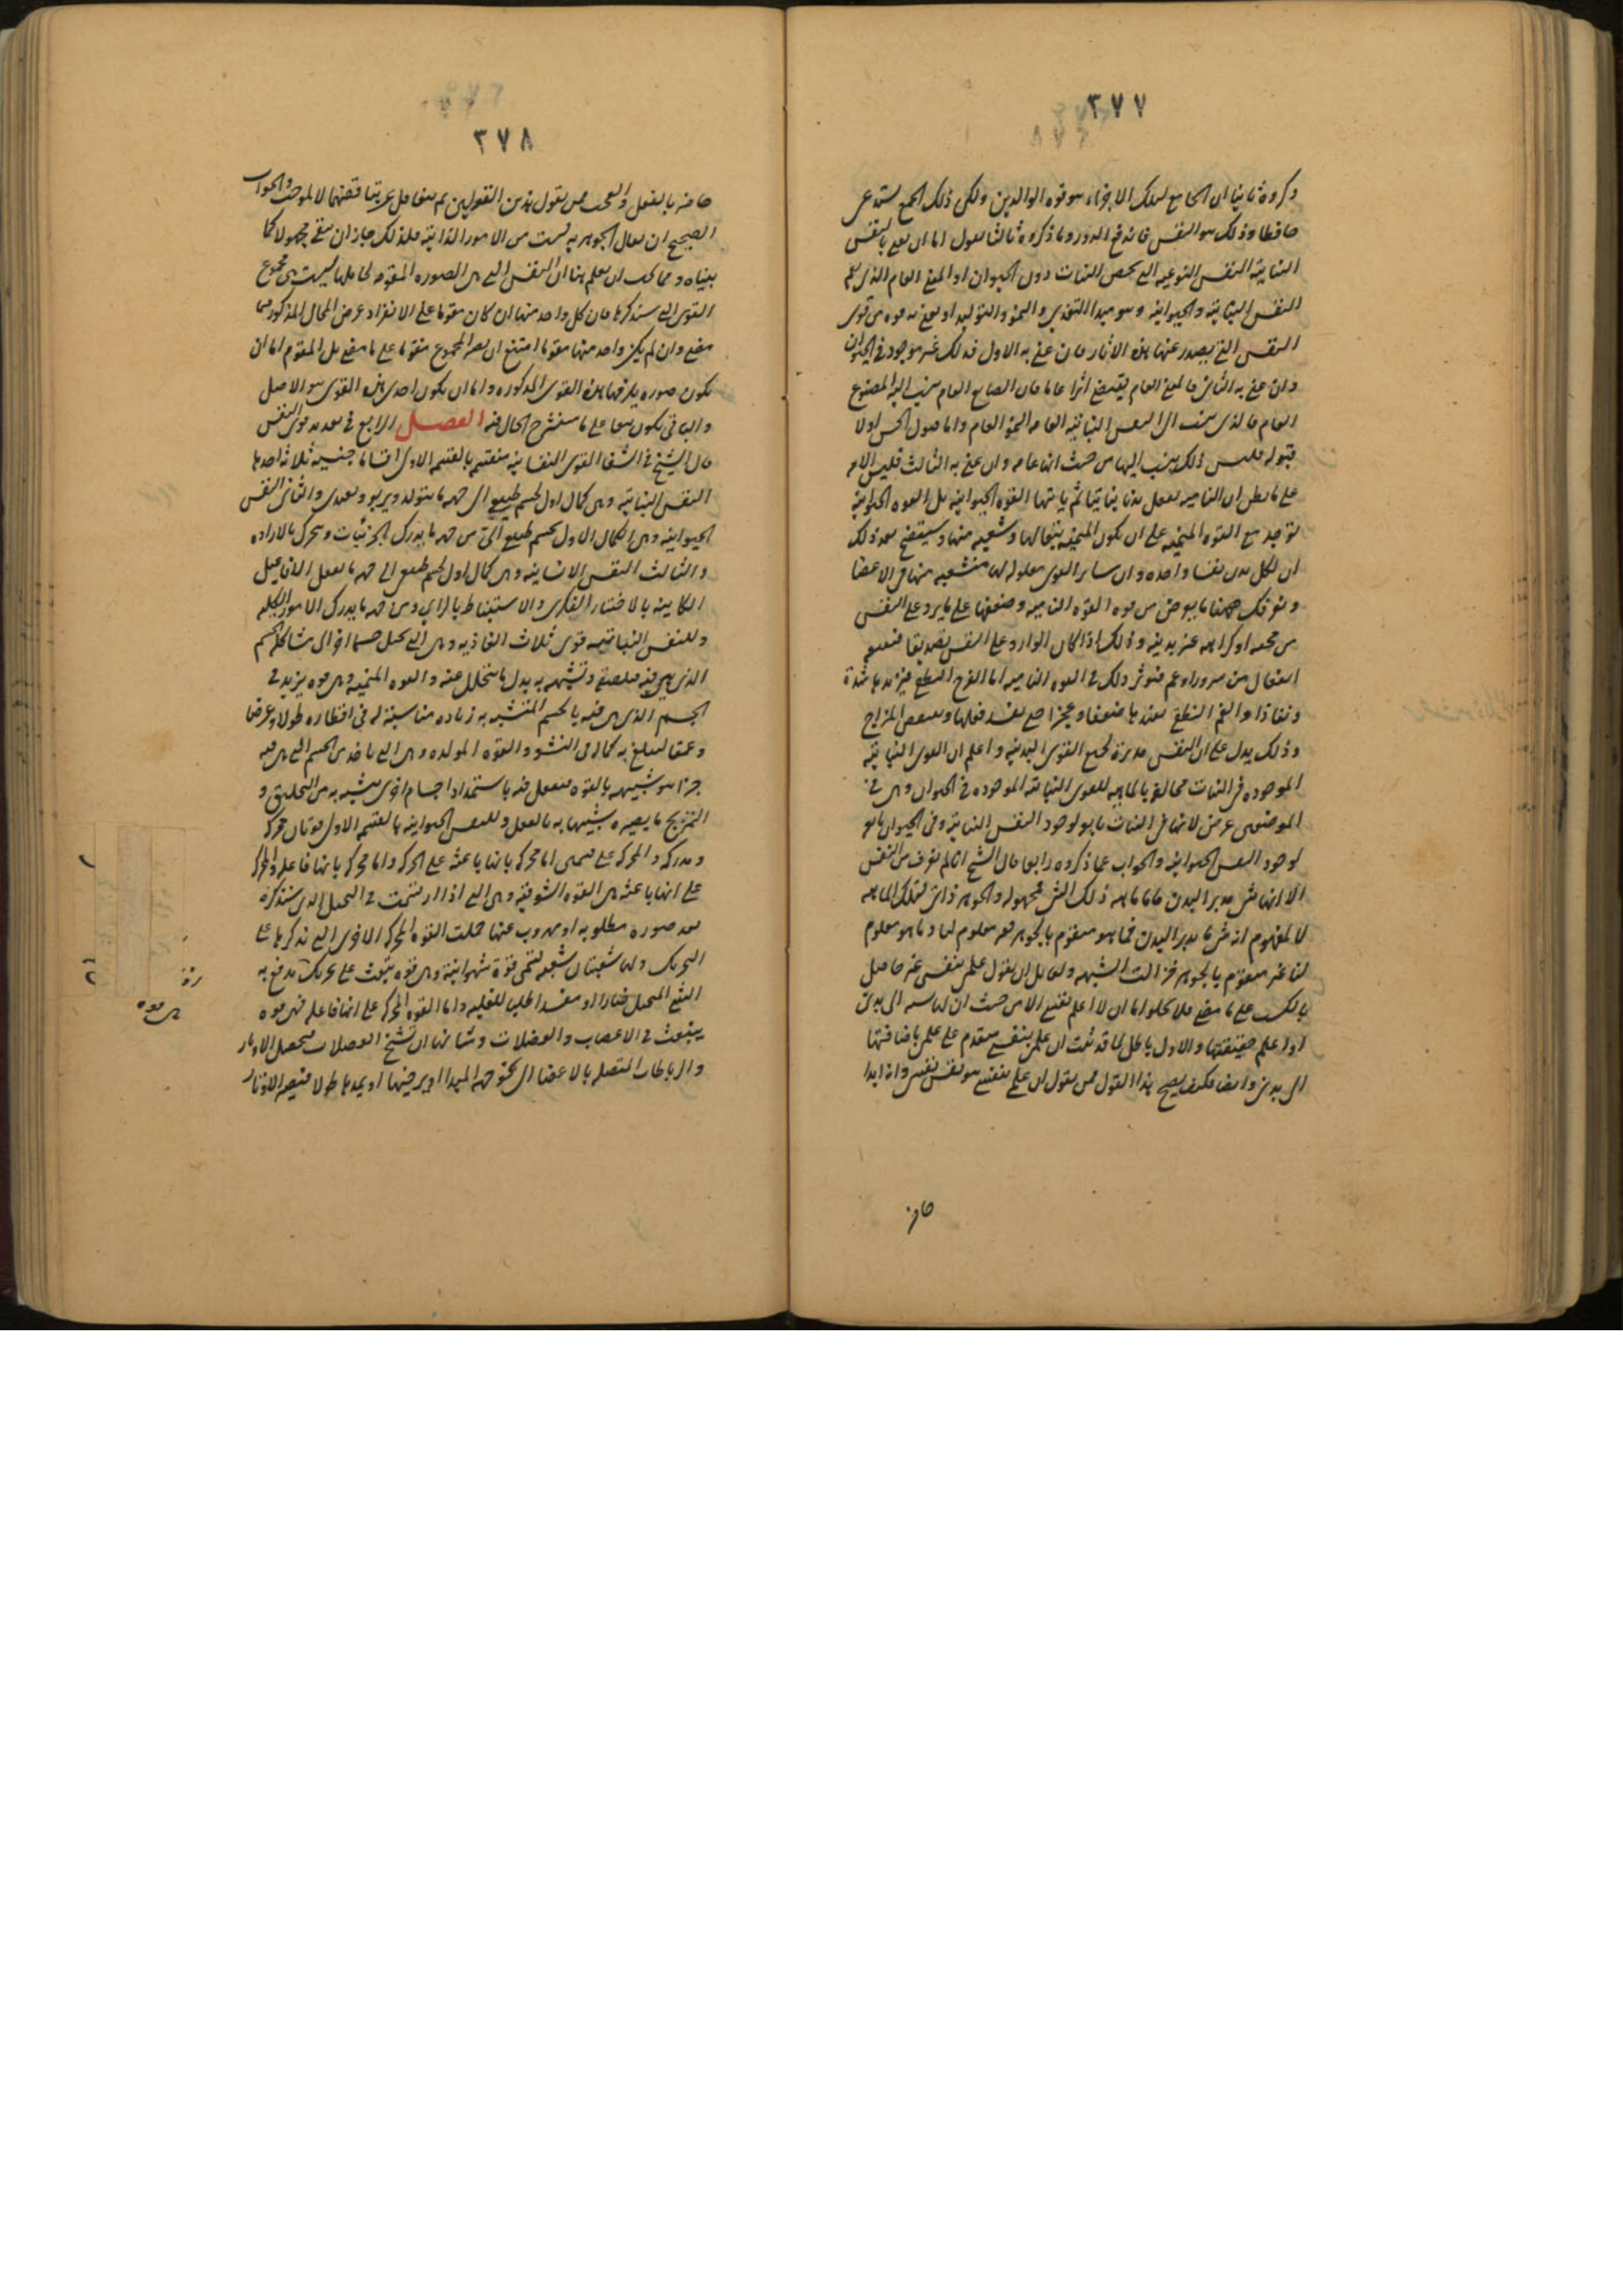 ٣٧٧
ذكروه ثانيا ان الجامع لتلك الاجزاء هو قوه الوالدين ولكن ذلك الجمع يستدعى
حافظا وذلك هو النفس فاندفع الدور وما ذكروه ثالثا نقول اما ان نعنى بالنفس
النباتية النفس النوعيه التى تخص النبات دون الحيوان او المعنى العام الذى يعم
النفس النباتية والحيوانية وهو مبدا التغذى والنمو والتوليد او نعنى به قوه من قوى
النفس التى يصدر عنها هذه الاثار فان عنى به الاول فذلك غير موجود فى الحيوان
وان عنى به الثانى فالمعنى العام يقتضى اثرا عاما فان الصانع العام ينسب اليه المصنوع
العام فالذى ينسب الى النفس النباتية العامه النمو العام واما حصول الحس اولا
قبوله فليس ذلك ينسب اليها من حيث انها عامه وان عنى به الثالث فليس الامر
على ما يظن ان الناميه تفعل بدنا نباتيا ثم ياتيها القوه الحيوانيه بل القوه الحيوانية
توجد مع القوه المنميه على ان يكون المنميه تبعا لها وشعبه منها وسيتضح بعد ذلك
ان لكل بدن نفسا واحده وان ساير القوى معلوله لها منشعبه منها فى الاعضا
ويعرفك ههنا ما يعرض من قوه القوه الناميه وضعفها على ما يرد على النفس
من محبه او كراهه غير بدنيه وذلك اذا كان الوارد على النفس تصديقا فيتبعه
انفعال من سرور او غم فيؤثر ذلك فى القوه الناميه اما الفرح النطقى فيزيدها شدة
ونفاذا والغم النطقى يفيدها ضعفا وعجزا حتى يفسد فعلها وينتقض المزاج
وذلك يدل على ان النفس مدبرة لجميع القوى البدنيه واعلم ان القوى النباتية
الموجوده فى النبات مخالفة بالماهيه للقوى النباتيه الموجوده فى الحيوان وهى فى
الموضعين عرض لانها فى النبات تابع لوجود النفس النباتية وفى الحيوان تابع
لوجود النفس الحيوانيه والجواب عما ذكروه رابعا قال الشيخ انا لم نعرف من النفس
الا انها شى مدبر البدن فاما ماهيه ذلك الشى فمجهوله والجوهر ذاتى لتلك الماهيه
لا لمفهوم انه شى ما مدبر البدن فما هو متقوم بالجوهر غير معلوم لنا وما هو معلوم
لنا غير متقوم بالجوهر فزالت الشبهه ولقايل ان يقول علمى بنفسى غير حاصل
بالكسب على ما مضى فلا يخلو اما ان لا اعلم نفسى الا من حيث ان لها نسبه الى بدنى
او اعلم حقيقتها والاول باطل لما قد ثبت ان علمى بنفسى متقدم على علمى باضافتها
الى بدنى وايضا فكيف يصح هذا القول ممن يقول ان علمى بنفسى هو نفس نفسى وانه ابدا
حاضر
٣٧٨
حاضر بالفعل والعجب ممن يقول بهذين القولين ثم يتغافل عن تناقضهما والجواب
الصحيح ان يقال الجوهريه ليست من الامور الذاتية فلذلك جاز ان تبقى مجهولا كما
بيناه ومما يجب ان يعلم هنا ان النفس التى هى الصوره المقومه لحاملها ليست هى مجموع
القوى التى سنذكرها فان كل واحد منها ان كان مقوما على الانفراد عرض المحال المذكور فيما
مضى وان لم يكن واحد منها مقوما امتنع ان يصير المجموع مقوما على ما مضى بل المقوم اما ان
يكون صوره يلزمها هذه القوى المذكوره واما ان يكون احدى هذه القوى هو الاصل
والباقى يكون تبعا على ما سنشرح الحال فيه الفصل الرابع فى تعديد قوى النفس
قال الشيخ فى الشفا القوى النفسانية منقسم بالقسم الاولى اقساما جنسيه ثلاثه احدها
النفس النباتية وهى كمال اول لجسم طبيعى الى من جهه ما يتولد ويربو ويغتذى والثانى النفس
الحيوانية وهى الكمال الاول لجسم طبيعى آلى من جهه ما يدرك الجزئيات ويتحرك بالاراده
والثالث النفس الانسانية وهى كمال اول لجسم طبيعى آلى جهه ما يفعل الافاعيل
الكاينه بالاختيار الفكرى والاستنباط بالراى ومن جهه ما يدرك الامور الكليه
وللنفس النباتيه قوى ثلاث الغاذيه وهى التى تحيل جسما اخر الى مشاكله الجسم
الذى هى فيه فتلصقه وتشبهه به بدل ما يتحلل عنه والقوه المنميه وهى قوه يزيد فى
الجسم الذى هى فيه بالجسم المتشبه به زياده متناسبة له فى اقطاره طولا وعرضا
وعمقا ليبلغ به كماله فى النشو والقوه المولده وهى التى تاخذ من الجسم الذى هى فيه
جزءا هو شبيهه بالقوه فيفعل فيه باستمداد اجسام اخرى يشبه به من التخليق و
التمزيج ما يصيره شبيها به بالفعل وللنفس الحيوانيه بالقسم الاول قوتان محركه
ومدركه والمحركه على قسمين اما محركه بانها باعثه على الحركه واما محركه بانها فاعله والمحركه
على انها باعثه هى القوه الشوقية وهى التى اذا ارتسمت فى التخيل الذى سنذكره
بعد صوره مطلوبه او مهروب عنها حملت القوه المحركه الاخرى التى نذكرها على
التحريك ولها شعبتان شعبه تسمى قوة شهوانية وهى قوه تبعث على تحريك يدفع به
الشى المتخيل ضارا او مفسدا طلبا للغلبه واما القوه المحركه على انها فاعله فهى قوه
ينبعث فى الاعصاب والعضلات وشانها ان تشنج العضلات فتحصل الاوتار
والرباطات المتصله بالاعضا الى نحو جهه المبدا او يرخيها او يمدها طولا فتصير الاوتار